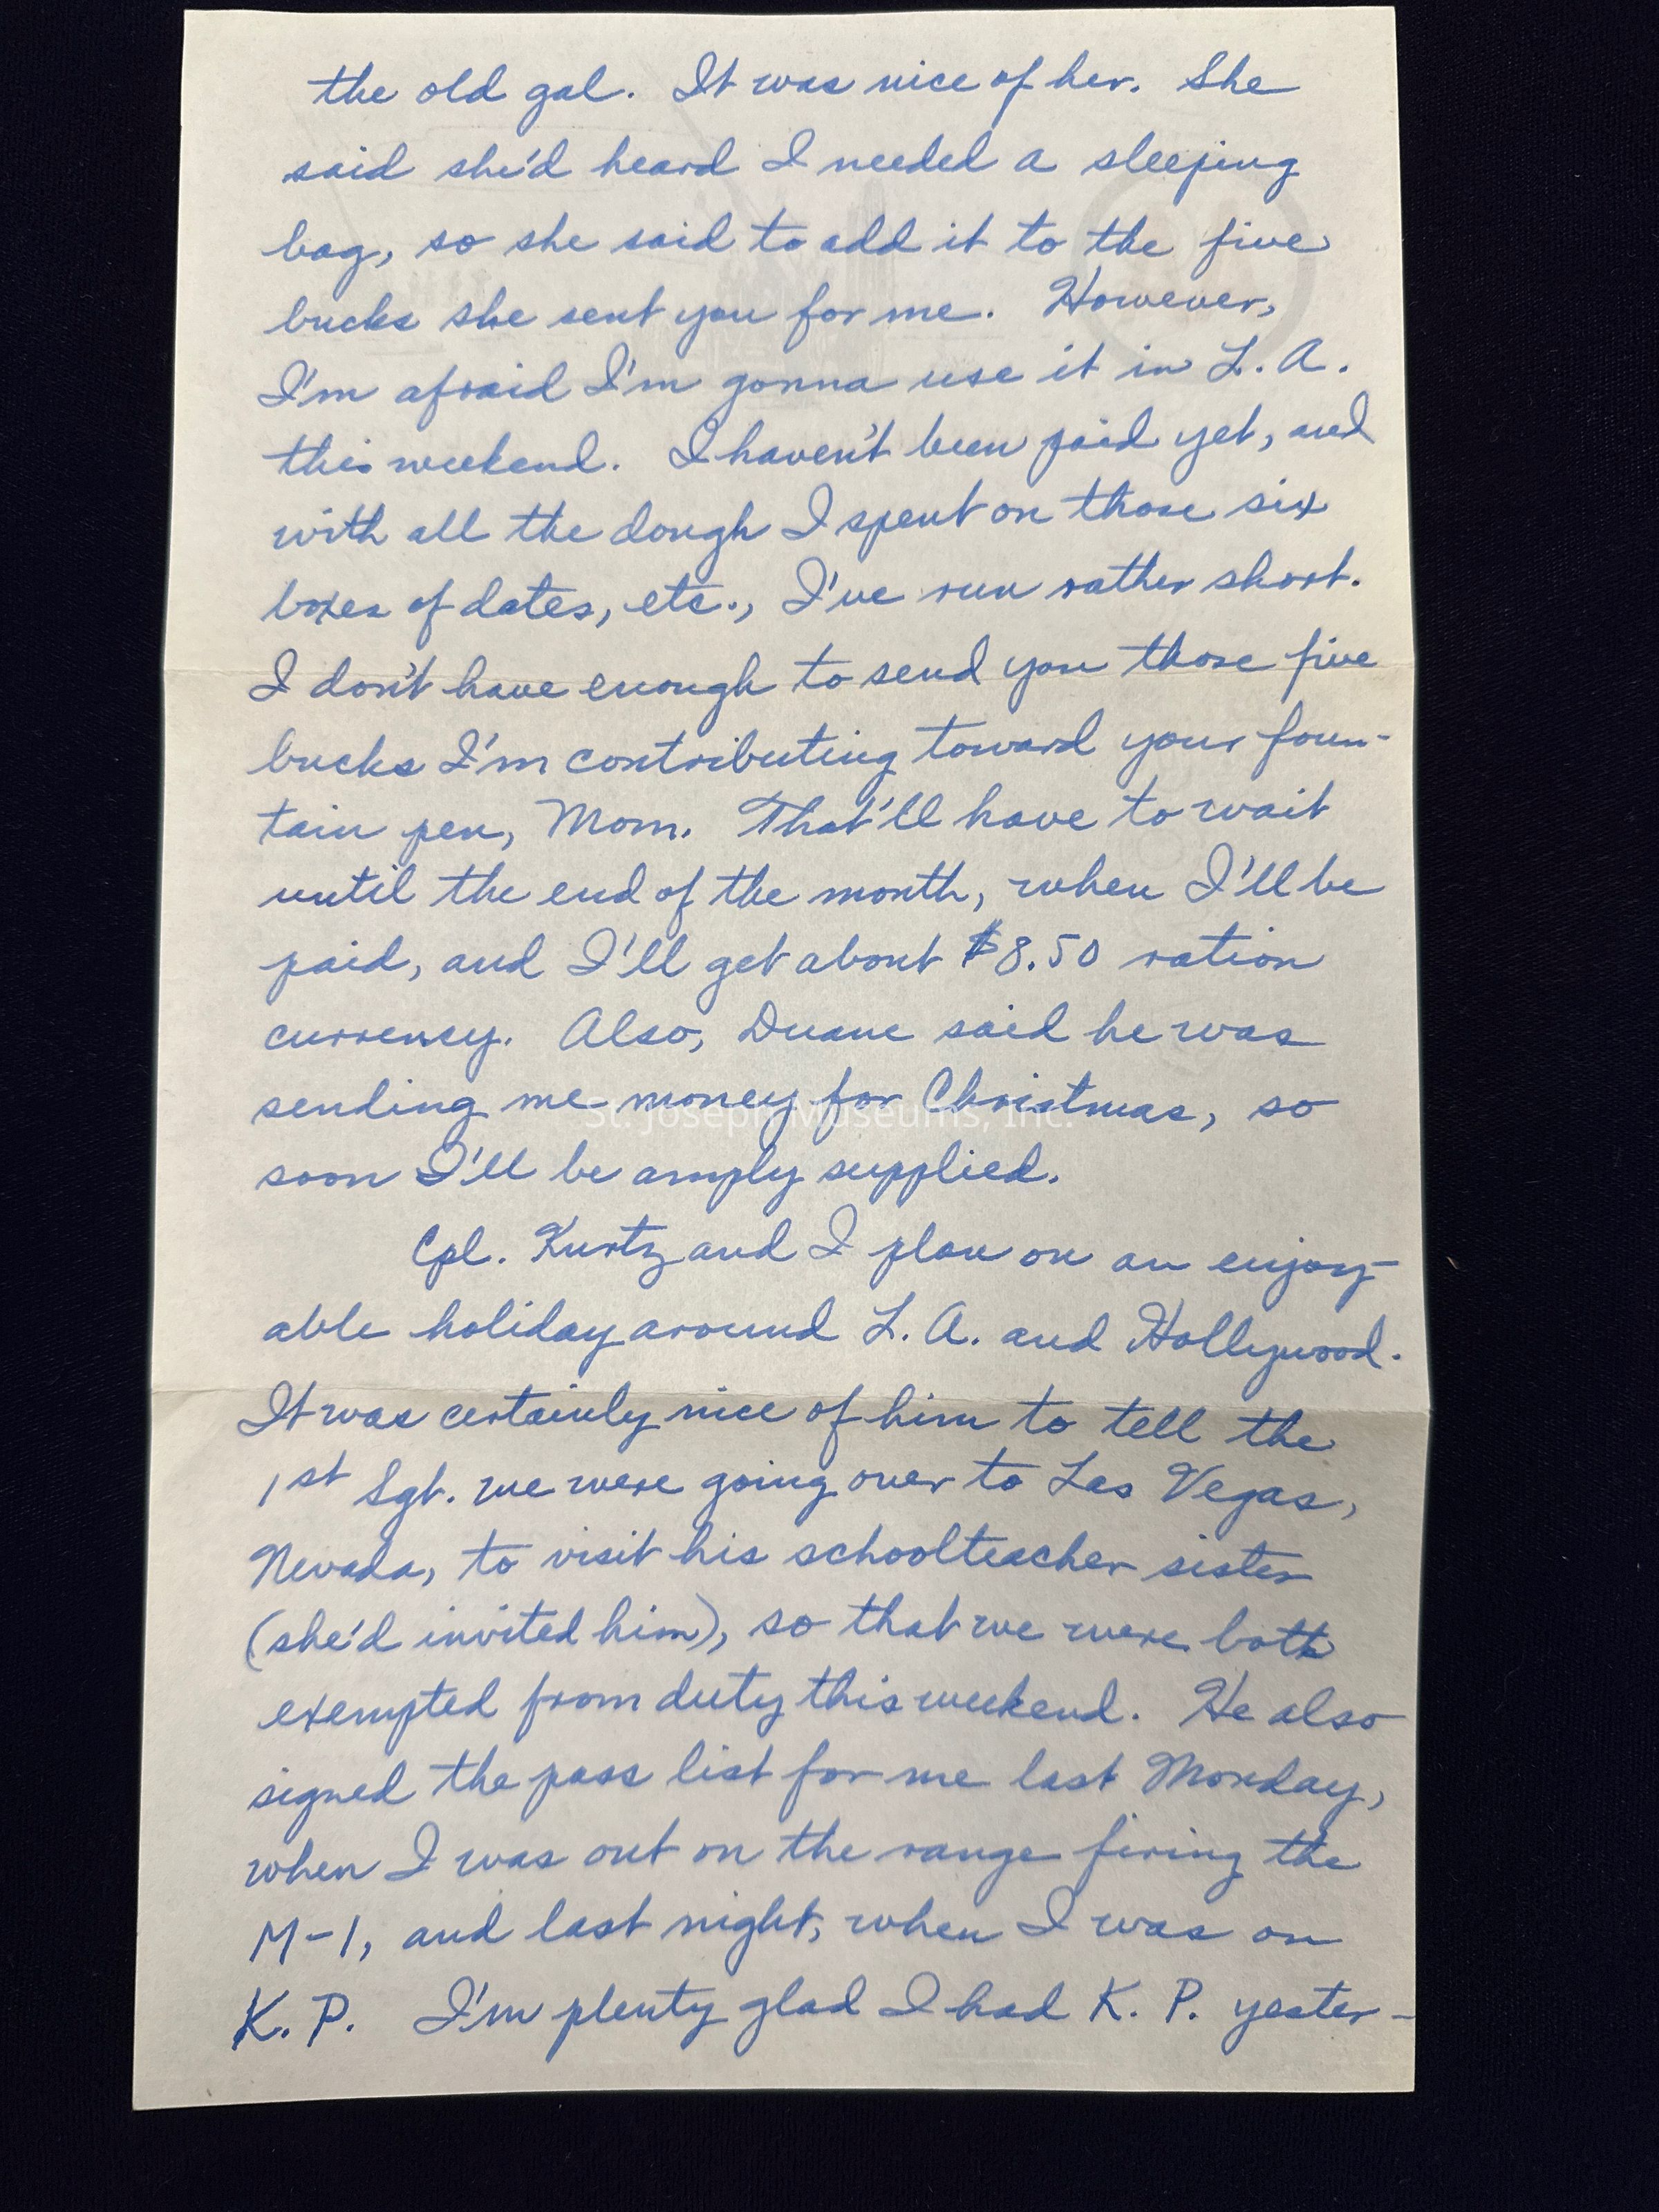 the old gal. It was nice of her. She
said she'd heard I needed a sleeping
bag, so she said to add it to the five
bucks she sent you for me. However,
I'm afraid I'm gonna use it in L. A.
this weekend. I haven't been paid yet, and
with all the dough I spent on those six
boxes of dates, etc., I've run rather short.
I don't have enough to send you those five
bucks I'm contributing toward your foun-
tain pen, Mom. That'll have to wait
until the end of the month, when I'll be
paid, and I'll get about $8.50 ration
currency. Also, Duane said he was
sending me money for Christmas, so
St. Joseph Museums, Inc.
soon I'll be amply supplied.
Cpl. Kurtz and I plan on an enjoy-
able holiday around L. A. and Hollywood.
It was certainly nice of him to tell the
1st Sgt. we were going over to Las Vegas,
Nevada, to visit his schoolteacher sister
(she'd invited him), so that we were both
exempted from duty this weekend. He also
signed the pass list for me last Monday,
when I was out on the range firing the
M-1, and last night, when I was on
K. P. I'm plenty glad I had K. P. yester-